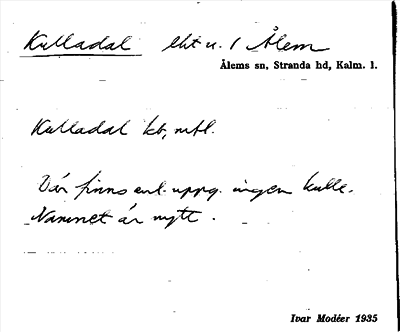 Kulladal lht u. 1 Ålem
Ålems sn, Stranda hd, Kalm. l.
Kulladal kt, mtl.
Där finns enl. uppg. ingen kulle.
Namnet är nytt.
Ivar Modéer 1935